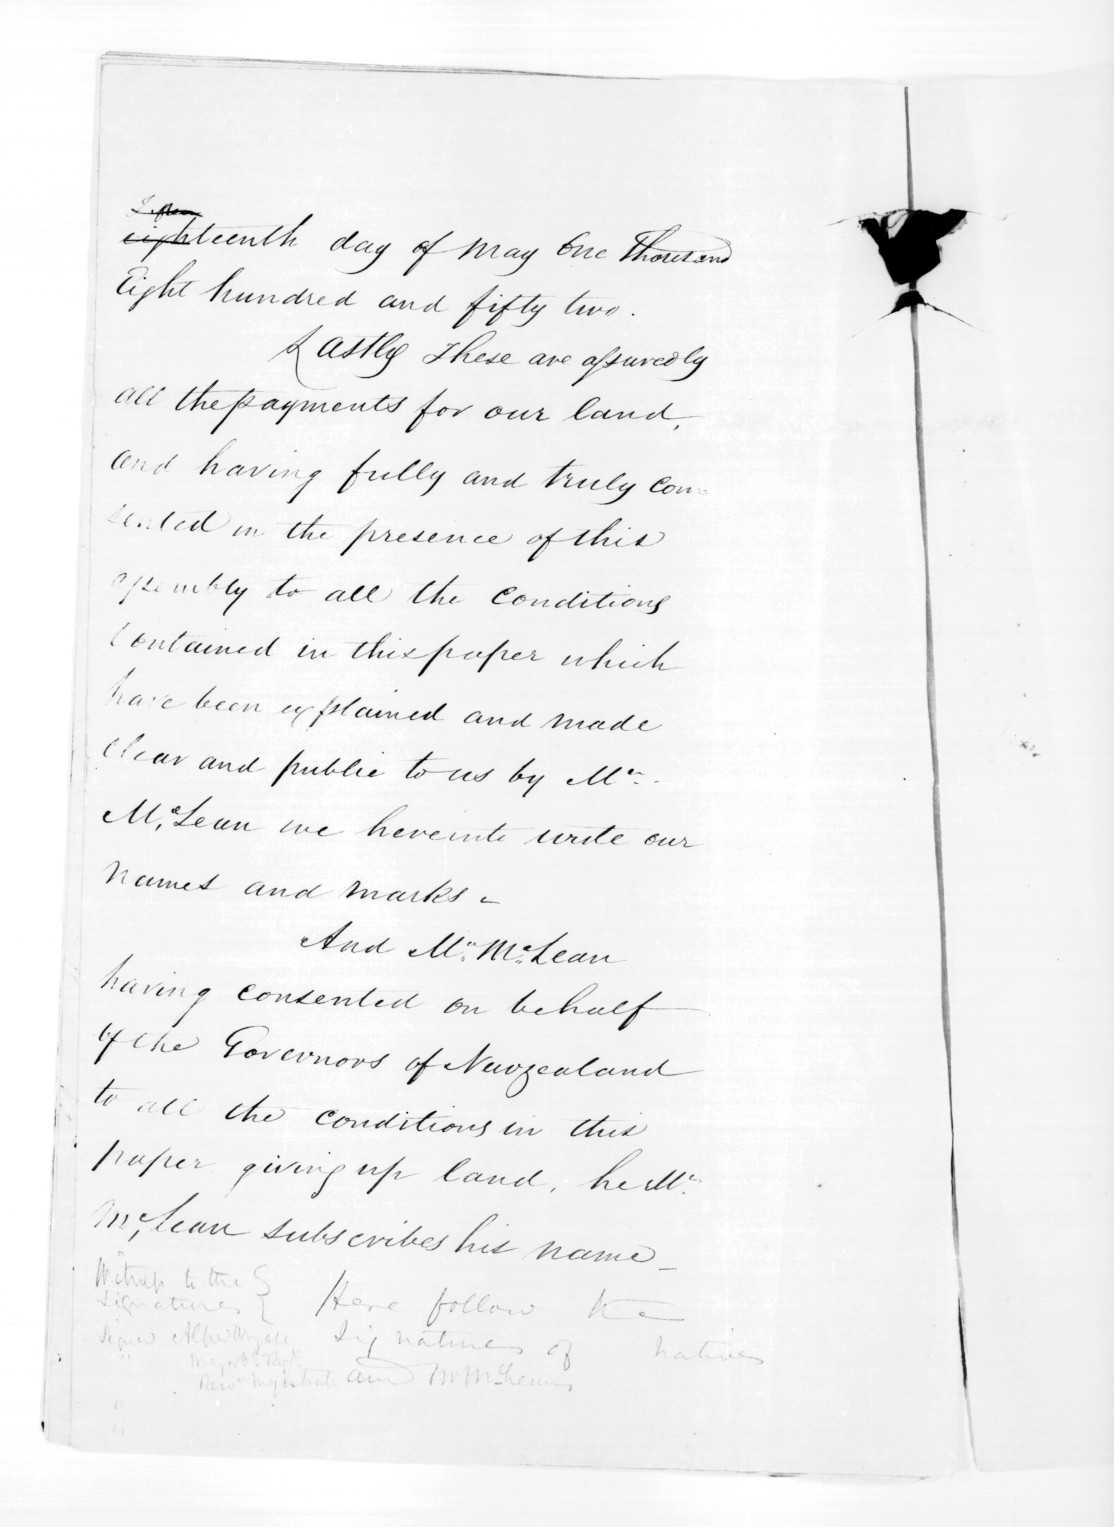 eighteenth day of May One Thousand
Eight hundred and fifty two.
Lastly These are assuredly
all the payments for our land,
and having fully and truly con-
sented in the presence of this
assembly to all the conditions
contained in this paper which
have been explained and made
clear and public to us by Mr.
McLean we hereinto write our
names and marks -
And Mr. McLean
having consented on behalf
of the Governors of Newzealand
to all the conditions in this
paper giving up land, he Mr.
McLean subscribes his name -
Witness to the
signatures
Here follow the
signatures of natives
and Mr McLean
Signed Alfred Wyatt
Major 65 Regt
Resdt Magistrate
"
"
"